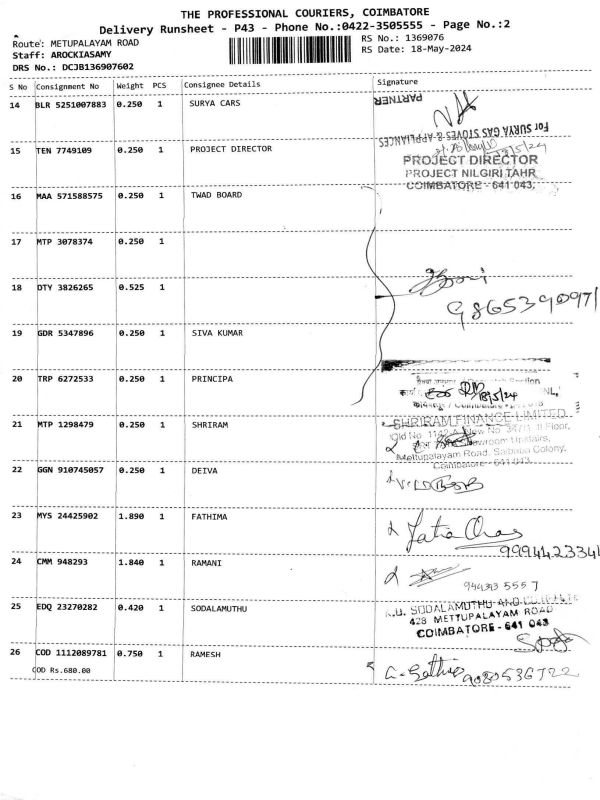 THE PROFESSIONAL COURIERS, COIMBATORE
Delivery Runsheet - P43 - Phone No.:0422-3505555 - Page No.:2
Route: METUPALAYAM ROAD
RS No.: 1369076
Staff: AROCKIASAMY
RS Date: 18-May-2024
DRS No.: DCJB136907602
S No Consignment No Weight PCS Consignee Details Signature
14 BLR 5251007883 0.250 1 SURYA CARS
PARTNER
For SURYA GAS STOVES & APPLIANCES
15 TEN 7749109 0.250 1 PROJECT DIRECTOR
PROJECT DIRECTOR
PROJECT NILGIRI TAHR
COIMBATORE - 641 043.
16 MAA 571588575 0.250 1 TWAD BOARD
17 MTP 3078374 0.250 1
18 OTY 3826265 0.525 1
19 GDR 5347896 0.250 1 SIVA KUMAR
20 TRP 6272533 0.250 1 PRINCIPA
18/5/24
21 MTP 1298479 0.250 1 SHRIRAM
SHRIRAM FINANCE LIMITED
Mettupalayam Road, Saibaba Colony,
Coimbatore - 641 043.
22 GGN 910745057 0.250 1 DEIVA
23 MYS 24425902 1.890 1 FATHIMA
24 CMM 948293 1.840 1 RAMANI
25 EDQ 23270282 0.420 1 SODALAMUTHU
428 METTUPALAYAM ROAD
COIMBATORE - 641 043
26 COD 1112089781 0.750 1 RAMESH
9080536722
COD Rs.680.00